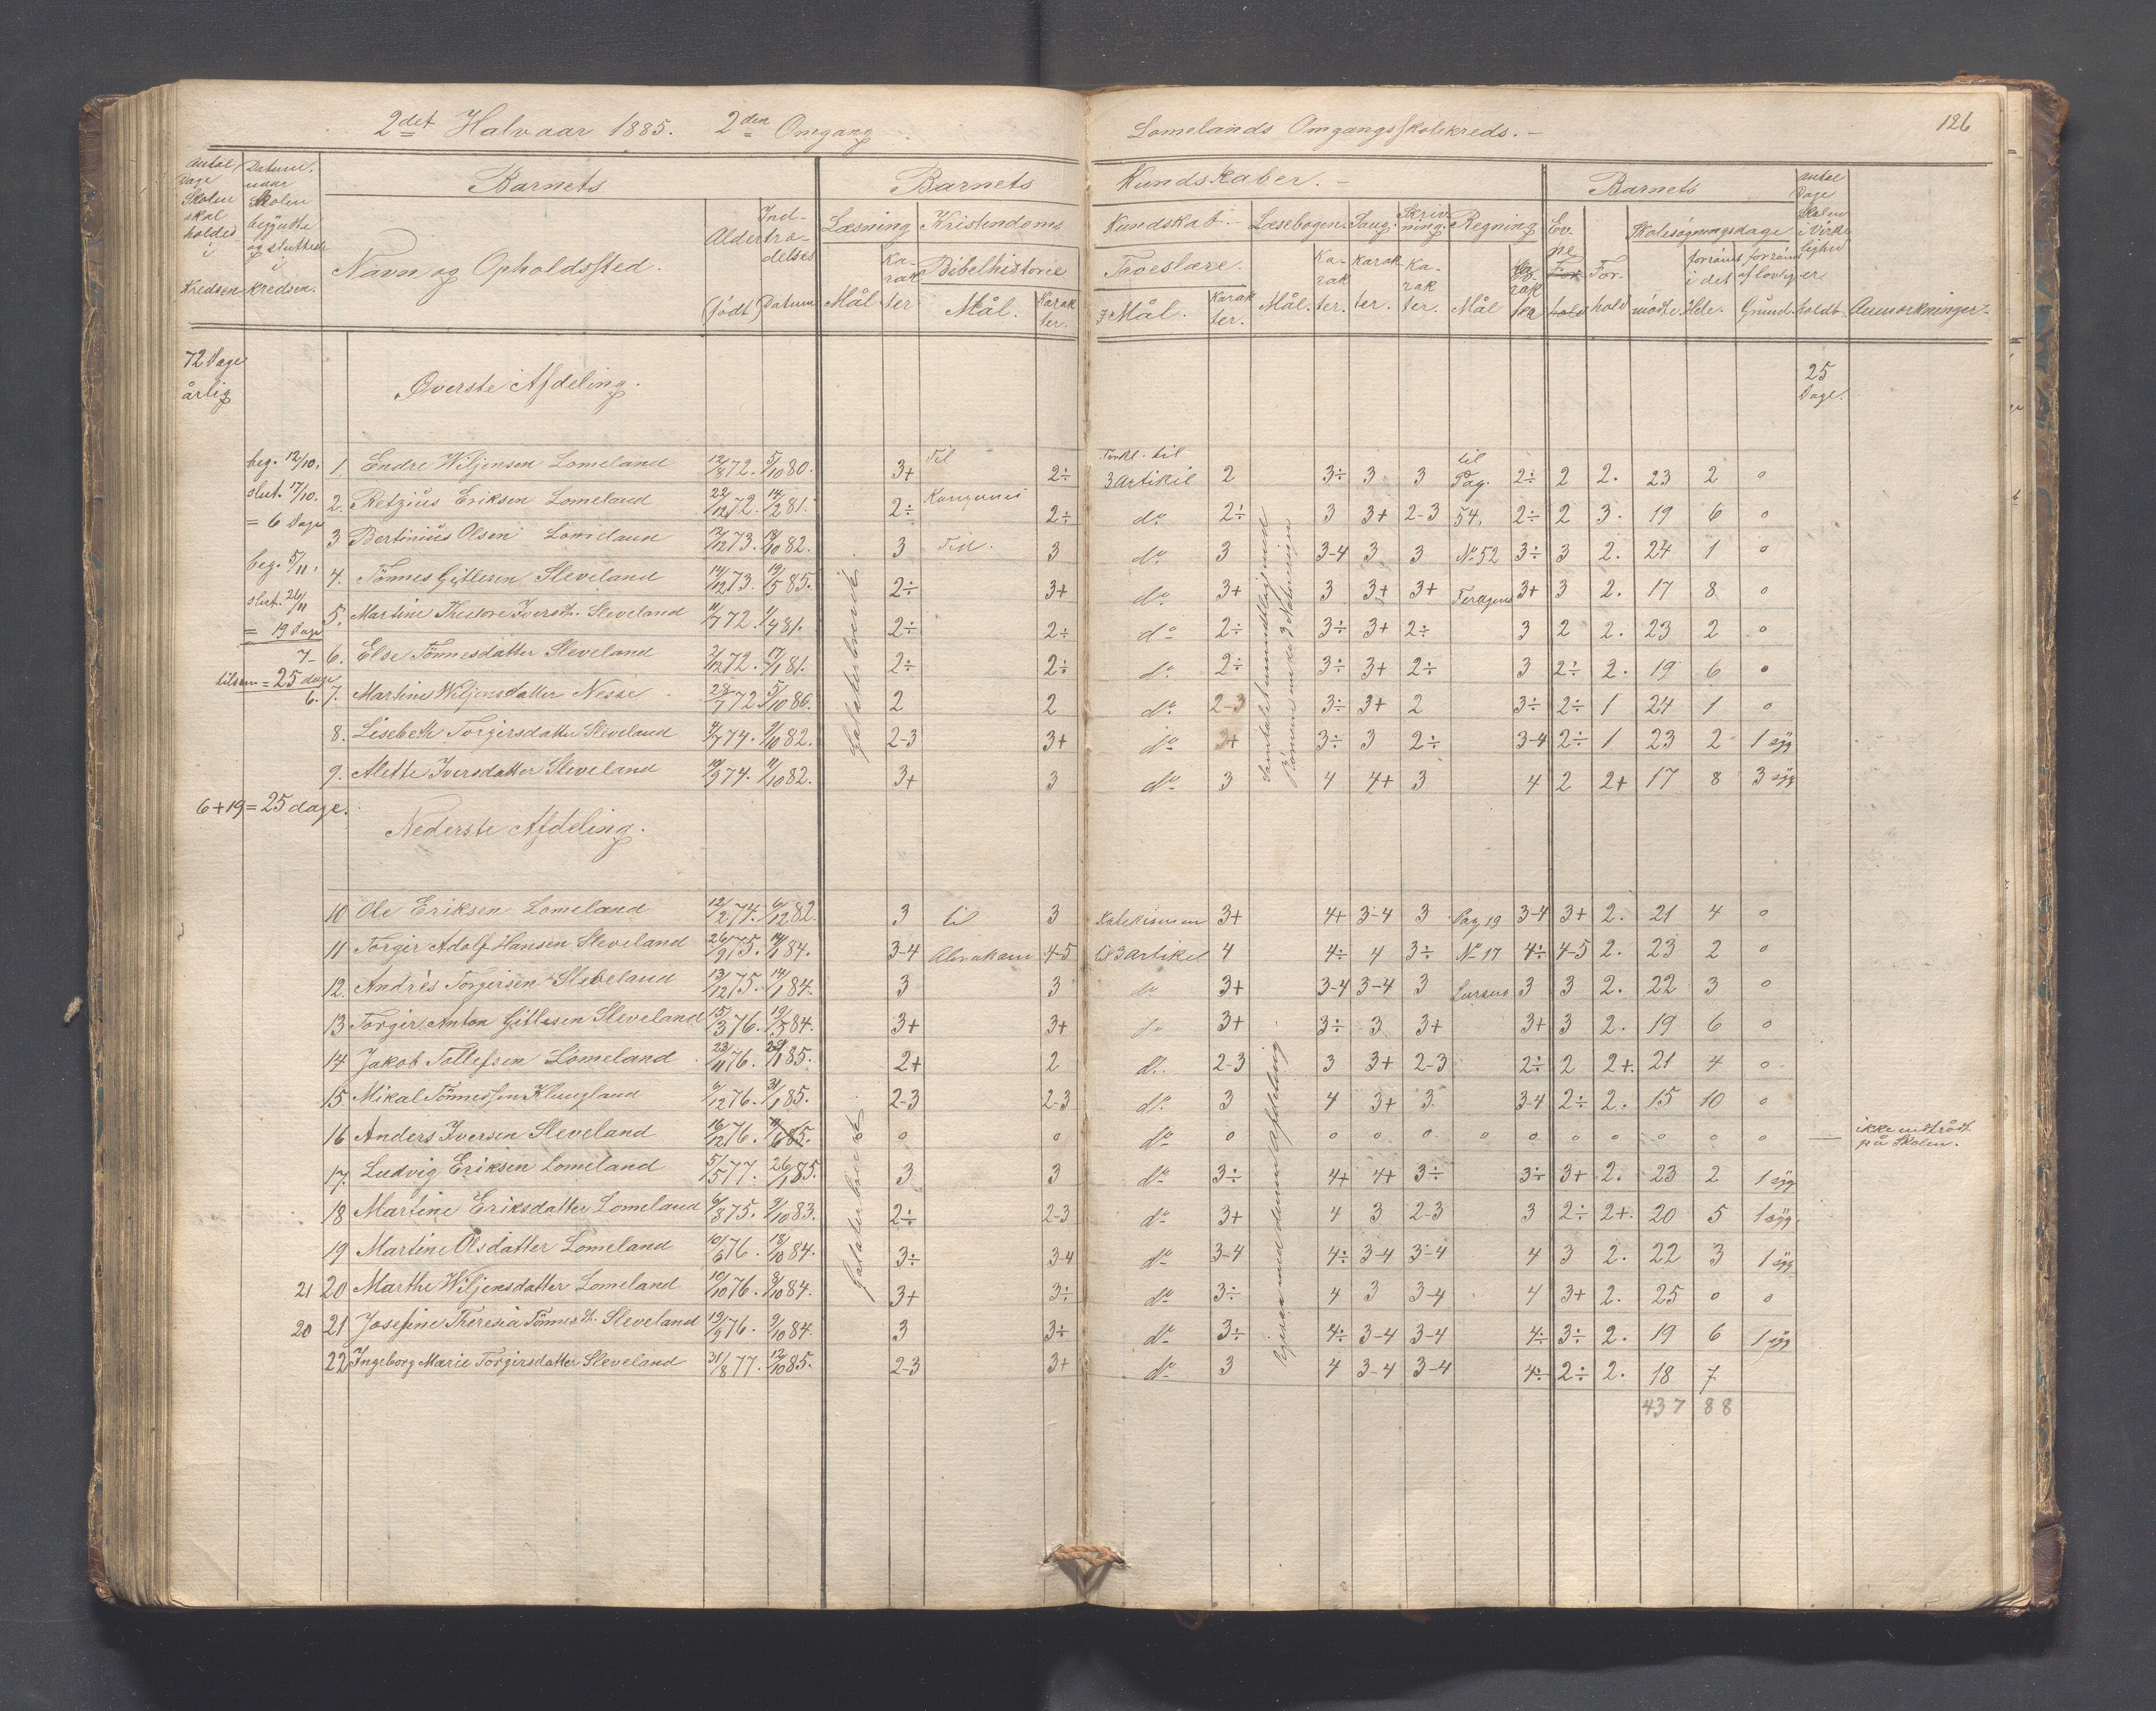 2det Halvaar 1885. 2den Omgang
Lomelands Omgangsskolekreds. –
126
Antal Dage Skolen skal holdes i Kredsen
Datum, naar Skolen begyndte og sluttede i Kredsen.
Barnets
Navn og Opholdssted.
Alder (født)
Indtrædelses Datum
Barnets Kundskaber. –
Læsning
Mål
Karakter
Kristendoms Kundskab. –
Bibelhistorie
Mål.
Karakter.
Troeslære.
Mål.
Karakter.
Læsebogen.
Mål.
Karakter.
Sang.
Karakter.
Skrivning.
Karakter.
Regning
Mål
Karakter
Barnets
Evne
Forhold
Skolesøgningsdage
mødte.
forsømt i det Hele.
forsømt af lovlig Grund.
Antal Dage Skolen i Virkelighed er holdt.
Anmærkninger.
72 Dage årlig
Øverste Afdeling.
25 Dage.
beg. 12/10.
slut. 17/10.
= 6 Dage
beg. 5/11.
slut. 26/11
= 19 Dage
7–
tilsam = 25 dage
6.
6+19 = 25 dage.
Galaterbrevet.
Samtalet mundtlig med
1. Endre Wiljensen Lomeland 12/8 72. 5/10 80. 3+ Til 2÷ Forkl. til 3 Artikil 2 3÷ 3 3 til Pag. 2÷ 2 2. 23 2 0
2. Retzius Eriksen Lomeland 22/12 72. 14/2 81. 2÷ Kongernes 2÷ do 2÷ 3 3+ 2-3 54. 2÷ 2 3. 19 6 0
3 Bertinius Olsen Lomeland 12/12 73. 18/10 82. 3 Tid. 3 do 3 3-4 3 3 No 52 3÷ 3 2. 24 1 0
4. Tönnes Gitlesen Sleveland 14/12 73. 19/5 85. 2÷ 3+ do 3+ 3 3+ 3+ 3+ 3 2. 17 8 0
5. Martine Thedore Iversdt. Sleveland 11/7 72. 1/4 81. 2÷ 2÷ do 2÷ 3÷ 3+ 2÷ 3 2 2. 23 2 0
6. Else Tönnesdatter Sleveland 2/12 72. 17/1 81. 2÷ 2÷ do 2÷ 3÷ 3+ 2÷ 3 2÷ 2. 19 6 0
7. Martine Wiljensdatter Nesse 28/7 72 5/10 80. 2 2 do 2-3 3÷ 3+ 2 3÷ 2÷ 1 24 1 0
8. Lisebeth Torgirsdatter Sleveland 4/7 74. 9/10 82. 2-3 3+ do 3+ 3÷ 3 2÷ 3-4 2÷ 1 23 2 1 syg
9. Alette Iversdatter Sleveland 19/9 74. 11/10 82. 3+ 3 do 3 4 4+ 3 4 2 2+ 17 8 3 syg
Nederste Afdeling.
Galaterbrevet.
10 Ole Eriksen Lomeland 12/2 74. 6/12 82. 3 til 3 Katekismen 3+ 4+ 3-4 3 Pag 19 3-4 3+ 2. 21 4 0
11 Torgir Adolf Hansen Sleveland 26/9 75. 14/1 84. 3-4 Abraham 4-5 til 3 artikel 4 4÷ 4 3÷ No 17 4÷ 4-5 2. 23 2 0
12. Andrès Torgirsen Sleveland 13/12 75. 14/1 84. 3 3 do 3+ 3-4 3-4 3 3 3 2. 22 3 0
13 Torgir Anton Gitlesen Sleveland 15/3 76. 19/5 84. 3+ 3+ do 3+ 3÷ 3 3+ 3+ 3 2. 19 6 0
14 Jakob Tollefsen Lomeland 23/11 76. 28/1 85. 2+ 2 do 2-3 3 3+ 2-3 2÷ 2 2+. 21 4 0
15. Mikal Tönnessen Klungland 6/12 76. 31/1 85. 2-3 2-3 do 3 4 3+ 3 3-4 2÷ 2. 15 10 0
16 Anders Iversen Sleveland 16/12 76. 11/6 85. 0 0 do 0 0 0 0 0 0 0 0 0 0 0 — ikke indtrådt på Skolen.
17. Ludvig Eriksen Lomeland 5/5 77. 26/1 85. 3 3 do 3÷ 4+ 4+ 3÷ 3÷ 3+ 2. 23 2 1 syg
18 Martine Eriksdatter Lomeland 6/8 75. 9/10 83. 2÷ 2-3 do 3+ 4 3 2-3 3 2÷ 2+. 20 5 1 syg.
19 Martine Olsdatter Lomeland 10/6 76. 18/10 84. 3÷ 3-4 do 3-4 4÷ 3-4 3-4 4 3 2. 22 3 1 syg
21 20 Marthe Wiljensdatter Lomeland 10/10 76. 8/10 84. 3+ 3÷ do 3÷ 4 3 3-4 4 3+ 2. 25 0 0
20 21 Josefine Theresia Tönnesdt. Sleveland 19/9 76. 9/10 84. 3 3÷ do 3÷ 4÷ 3-4 3-4 4÷ 3÷ 2. 19 6 1 syg
22 Ingeborg Marie Torgirsdatter Sleveland 31/8 77. 12/10 85. 2-3 3+ do 3 4 3-4 3-4 4÷ 2÷ 2. 18 7
437 88